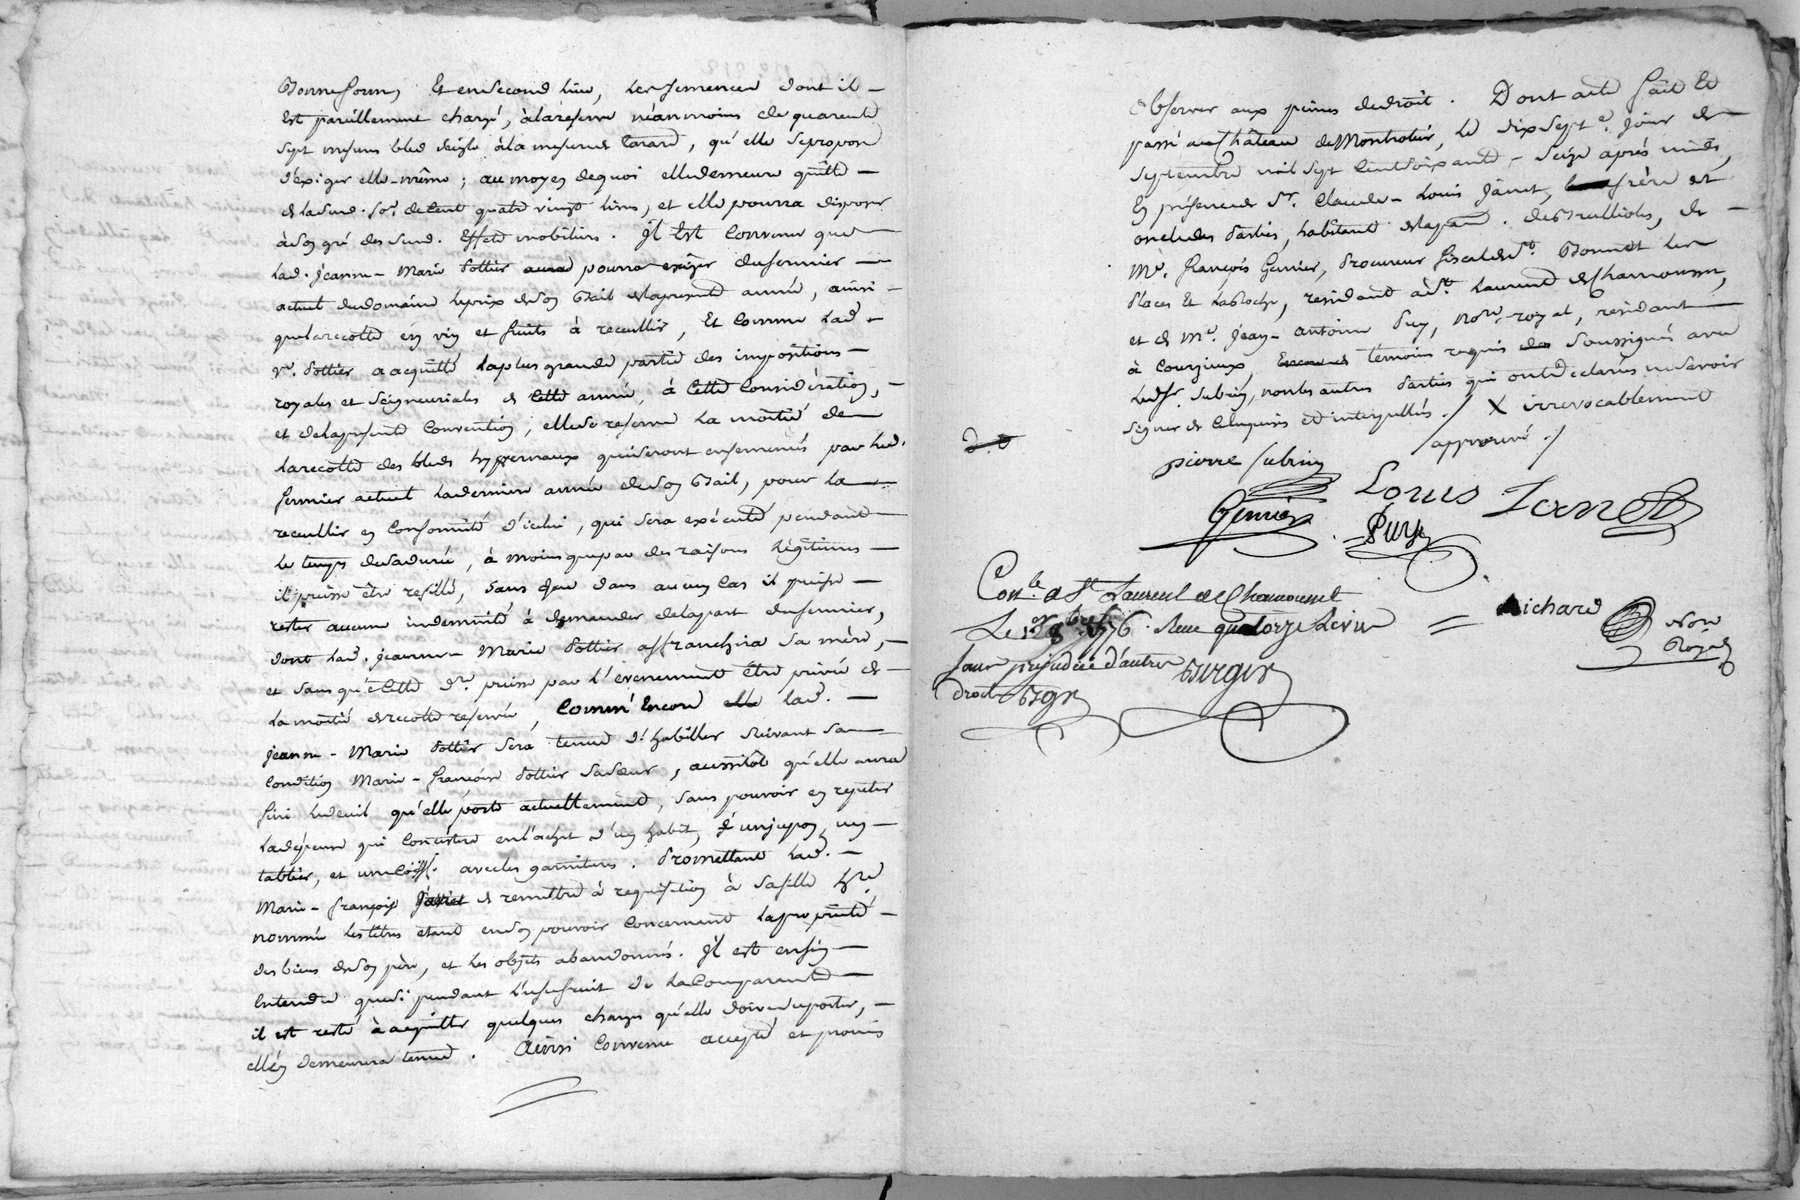 Bonne forme, Et en second lieu, les semences dont il
est pareillement chargé, à la réserve néanmoins de quarente
sept mesures bled seigle à la mesure de tarare, qu'elle se propose
d'éxiger elle-même ; au moyen de quoi elle demeure quitte
de lad. so. de cent quatre vingt livres, et elle pourra disposer
à son gré des susd. Effets mobiliers. Il Est Convenu que
lad. jeanne-Marie pourra exiger du fermier
actuel du domaine le prix de son Bail de la présente année, ainsi
que la recolte en vin et fruits à recueillir, Et Comme lad.
ve. a acquitté la plus grande partie des impositions
royales et seigneuriales de cette année, à Cette Considération,
et de la présente Convention, elle se reserve la moitié de
la recolte des bleds hyvernaux qui seront ensemencés par led.
fermier actuel la derniere année de son Bail, pour la
recueillir en Conformité d'icelui, qui sera exécuté pendant
le temps de sa durée, à moins que par des raisons légitimes
il puisse être resilié, sans que dans aucun Cas il puisse
rester aucune indemnité à demander de la part du fermier,
dont lad. jeanne-Marie affranchira sa mère,
et sans qu'Elle puisse par l'évenement être privée de
la moitié de recolte reservée, Comm'Encore lad.
jeanne-Marie sera tenue d'habiller suivant sa
Condition Marie-françoise sa sœur, aussitôt qu'elle aura
fini le deuil qu'elle porte actuellement, sans pouvoir en repeter
la dépense qui Consistera en l'achat d'un habit, d'un jupon, un
tablier, et une avec les garnitures. Promettant lad.
Marie-françoise de remettre à requisition à sa fille
nommée les titres etant en son pouvoir concernant la propriété
des biens de son père, et les objets abandonnés. Il est enfin
Entendu que si pendant l'usufruit de la Comparante
il est resté à acquitter quelques charges qu'elle doive supporter,
elle en demeurera tenue. Ainsi Convenu accepté et promis
observer aux peines de droit. Dont acte fait Et
passé au Château de Montrotier, Le dix septe. jour de
septembre mil sept Cent soixante-seize après midi,
En présence de Sr. Claude-Louis Janet, frère et
oncle des Parties, habitant de la par. de Brullioles, de
Me. françois Gervier, Procureur fiscal de St. Bonnet les
Places Et la Roche, residant à St. Laurent de Chamousset,
et de Me. Jean-antoine Puy, Nore. royal, residant
à Courzieux, témoins requis soussignés avec
led. Sr. Subrin, non les autres Parties qui ont déclaré ne savoir
signer de Ce enquises et interpellées. / X irrévocablement
/ approuvé ./
pierre subrin
Louis Janet
Gervier
Puy
Conle. a St. Laurent de Chamousset
Le 1er 8bre 1776. Recu quatorze Livres
sauf prejudice d'autres
droits
Richard
Nore
Royal